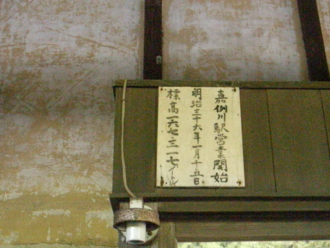 嘉例川駅営業開始
明治三十六年一月十五日
標高一六七・三一七メートル